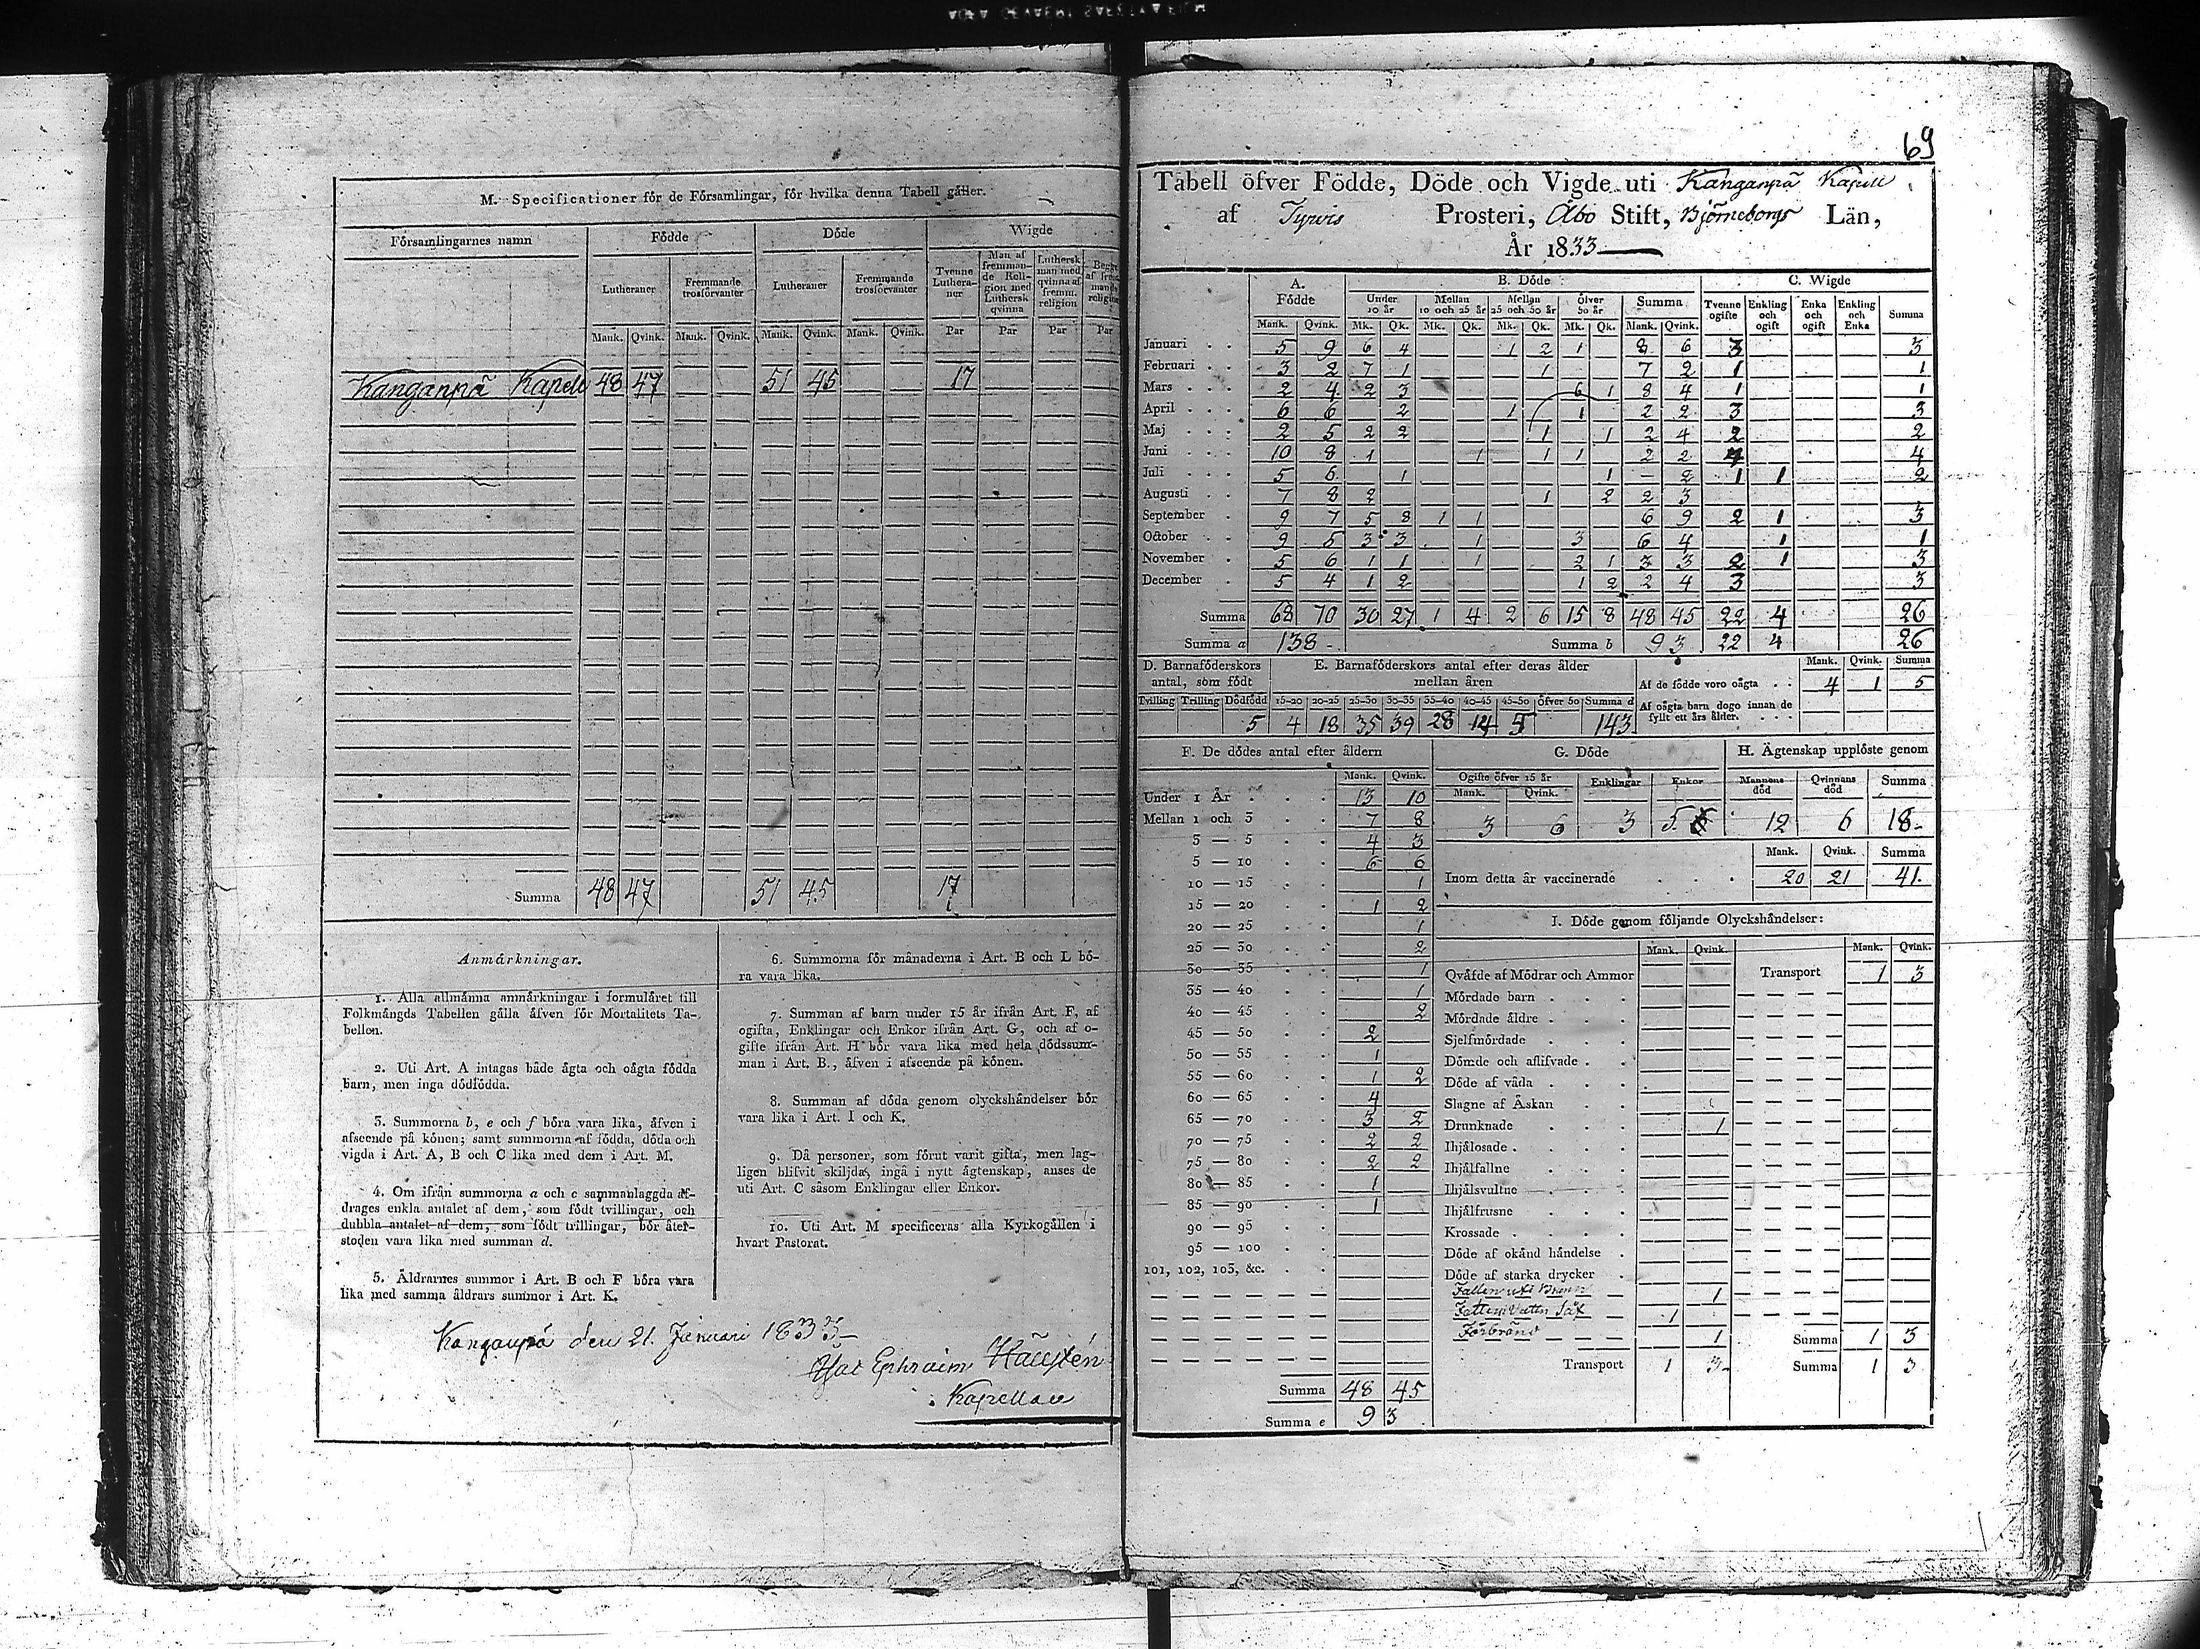 M. Specificationer för de Församlingar, för hvilka denna Tabell gäller.
Församlingarnes namn Födde Döde Wigde
Lutheraner Fremmande trosförvanter Lutheraner Fremmande trosförvanter Tvenne Lutheraner Man af fremmande Religion med Luthersk qvinna Luthersk man med qvinna af fremm. religion
Mank. Qvink. Mank. Qvink. Mank. Qvink. Mank. Qvink. Par Par Par Par
Kanganpä Kapell 48 47 51 45 17
Summa 48 47 51 45 17
Anmärkningar.
1. Alla allmänna anmärkningar i formuläret till
Folkmängds Tabellen gälla äfven för Mortalitets Ta-
bellen.
2. Uti Art. A intagas både ägta och oägta födda
barn, men inga dödfödda.
3. Summorna b, e och f böra vara lika, äfven i
afseende på könen; samt summorna af födda, döda och
vigda i Art. A, B och C lika med dem i Art. M.
4. Om ifrån summorna a och c sammanlaggda af-
drages enkla antalet af dem, som födt tvillingar, och
dubbla antalet af dem, som födt trillingar, bör åter-
stoden vara lika med summan d.
5. Äldrarnes summor i Art. B och F böra vara
lika med samma åldrars summor i Art. K.
6. Summorna för månaderna i Art. B och L bö-
ra vara lika.
7. Summan af barn under 15 år ifrån Art. F, af
ogifta, Enklingar och Enkor ifrån Art. G, och af o-
gifte ifrån Art. H bör vara lika med hela dödssum-
man i Art. B., äfven i afseende på könen.
8. Summan af döda genom olyckshändelser bör
vara lika i Art. I och K.
9. Då personer, som förut varit gifta, men lag-
ligen blifvit skiljda, ingå i nytt ägtenskap, anses de
uti Art. C såsom Enklingar eller Enkor.
10. Uti Art. M specificeras alla Kyrkogällen i
hvart Pastorat.
Kanganpä den 21. Januari 1833
Ephraim Hallstén
Kapellan
69
Tabell öfver Födde, Döde och Vigde uti Kanganpä Kapell
af Tyrvis Prosteri, Åbo Stift, Björneborgs Län,
År 1833
A. Födde B. Döde C. Wigde
Under 10 år Mellan 10 och 25 år Mellan 25 och 50 år öfver 50 år Summa Tvenne ogifte Enkling och ogift Enka och ogift Enkling och Enka Summa
Mank. Qvink. Mk. Qk. Mk. Qk. Mk. Qk. Mk. Qk. Mank. Qvink.
Januari 5 9 6 4 1 2 1 8 6 3 3
Februari 3 2 7 1 1 7 2 1 1
Mars 2 4 2 3 6 1 8 4 1 1
April 6 6 2 1 1 2 2 3 3
Maj 2 5 2 2 1 1 2 4 2 2
Juni 10 8 1 1 1 1 2 2 4 4
Juli 5 6 1 1 – 2 1 1 2
Augusti 7 8 2 1 2 2 3
September 9 7 5 8 1 1 6 9 2 1 3
October 9 5 3 3 1 3 6 4 1 1
November 5 6 1 1 1 2 1 3 3 2 1 3
December 5 4 1 2 1 2 2 4 3 3
Summa 68 70 30 27 1 4 2 6 15 8 48 45 22 4 26
Summa a 138 Summa b 93 22 4 26
D. Barnaföderskors antal, som födt E. Barnaföderskors antal efter deras ålder mellan åren
Tvilling Trilling Dödfödd 15-20 20-25 25-30 30-35 35-40 40-45 45-50 öfver 50 Summa d
5 4 18 35 39 28 14 5 143
Mank. Qvink. Summa
Af de födde voro oägta 4 1 5
Af oägta barn dogo innan de fyllt ett års ålder.
F. De dödes antal efter åldern
Mank. Qvink.
Under 1 År 13 10
Mellan 1 och 3 7 8
3 — 5 4 3
5 — 10 6 6
10 — 15 1
15 — 20 1 2
20 — 25 1
25 — 30 2
30 — 35 1
35 — 40 1
40 — 45 2
45 — 50 2
50 — 55 1
55 — 60 1 2
60 — 65 4
65 — 70 3 2
70 — 75 2 2
75 — 80 2 2
80 — 85 1
85 — 90 1
90 — 95
95 — 100
101, 102, 103, &c.
Summa 48 45
Summa e 93
G. Döde
Ogifte öfver 15 år Enklingar Enkor
Mank. Qvink.
3 6 3 5
H. Ägtenskap upplöste genom
Mannens död Qvinnans död Summa
12 6 18
Mank. Qvink. Summa
Inom detta år vaccinerade 20 21 41.
I. Döde genom följande Olyckshändelser:
Mank. Qvink. Mank. Qvink.
Qväfde af Mödrar och Ammor Transport 1 3
Mördade barn
Mördade äldre
Sjelfmördade
Dömde och aflifvade
Döde af våda
Slagne af Åskan
Drunknade 1
Ihjälosade
Ihjälfallne
Ihjälsvultne
Ihjälfrusne
Krossade
Döde af okänd händelse
Döde af starka drycker
Fallen uti Brunn 1
1
Förbränd 1 Summa 1 3
Transport 1 3 Summa 1 3